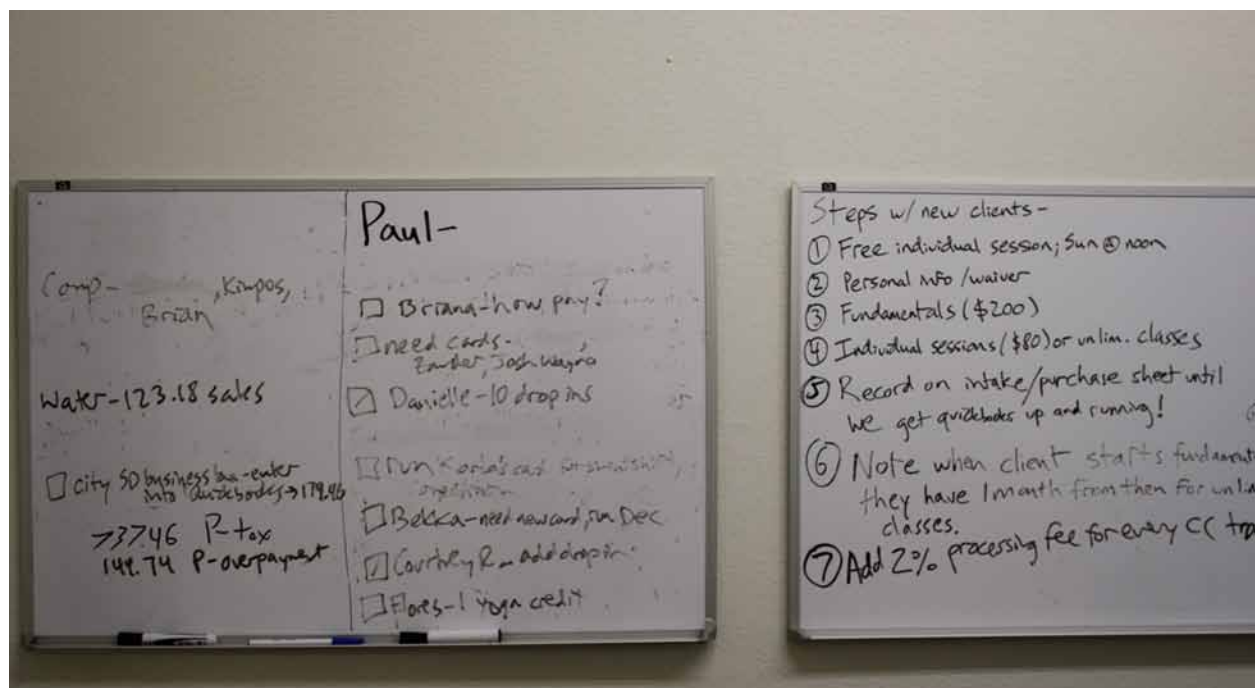 Comp- , Kimpos,
Brian
Water-123.18 sales
city SD business tax-enter
into Quickbooks→179.46
73746 P-tax
149.74 P-overpayment
Paul-
Briana-how pay?
need cards-
Zander, Josh, Wayne
Danielle-10 drop ins
run card for
Bekka-need new card, run Dec
Courtney R- add drop in
Flores-1 yoga credit
Steps w/ new clients-
① Free individual session; Sun @ noon
② Personal info/waiver
③ Fundamentals ($200)
④ Individual sessions ($80) or unlim. classes
⑤ Record on intake/purchase sheet until
we get quickbooks up and running!
⑥ Note when client starts fundament
they have 1 month from then for unlim
classes.
⑦ Add 2% processing fee for every CC